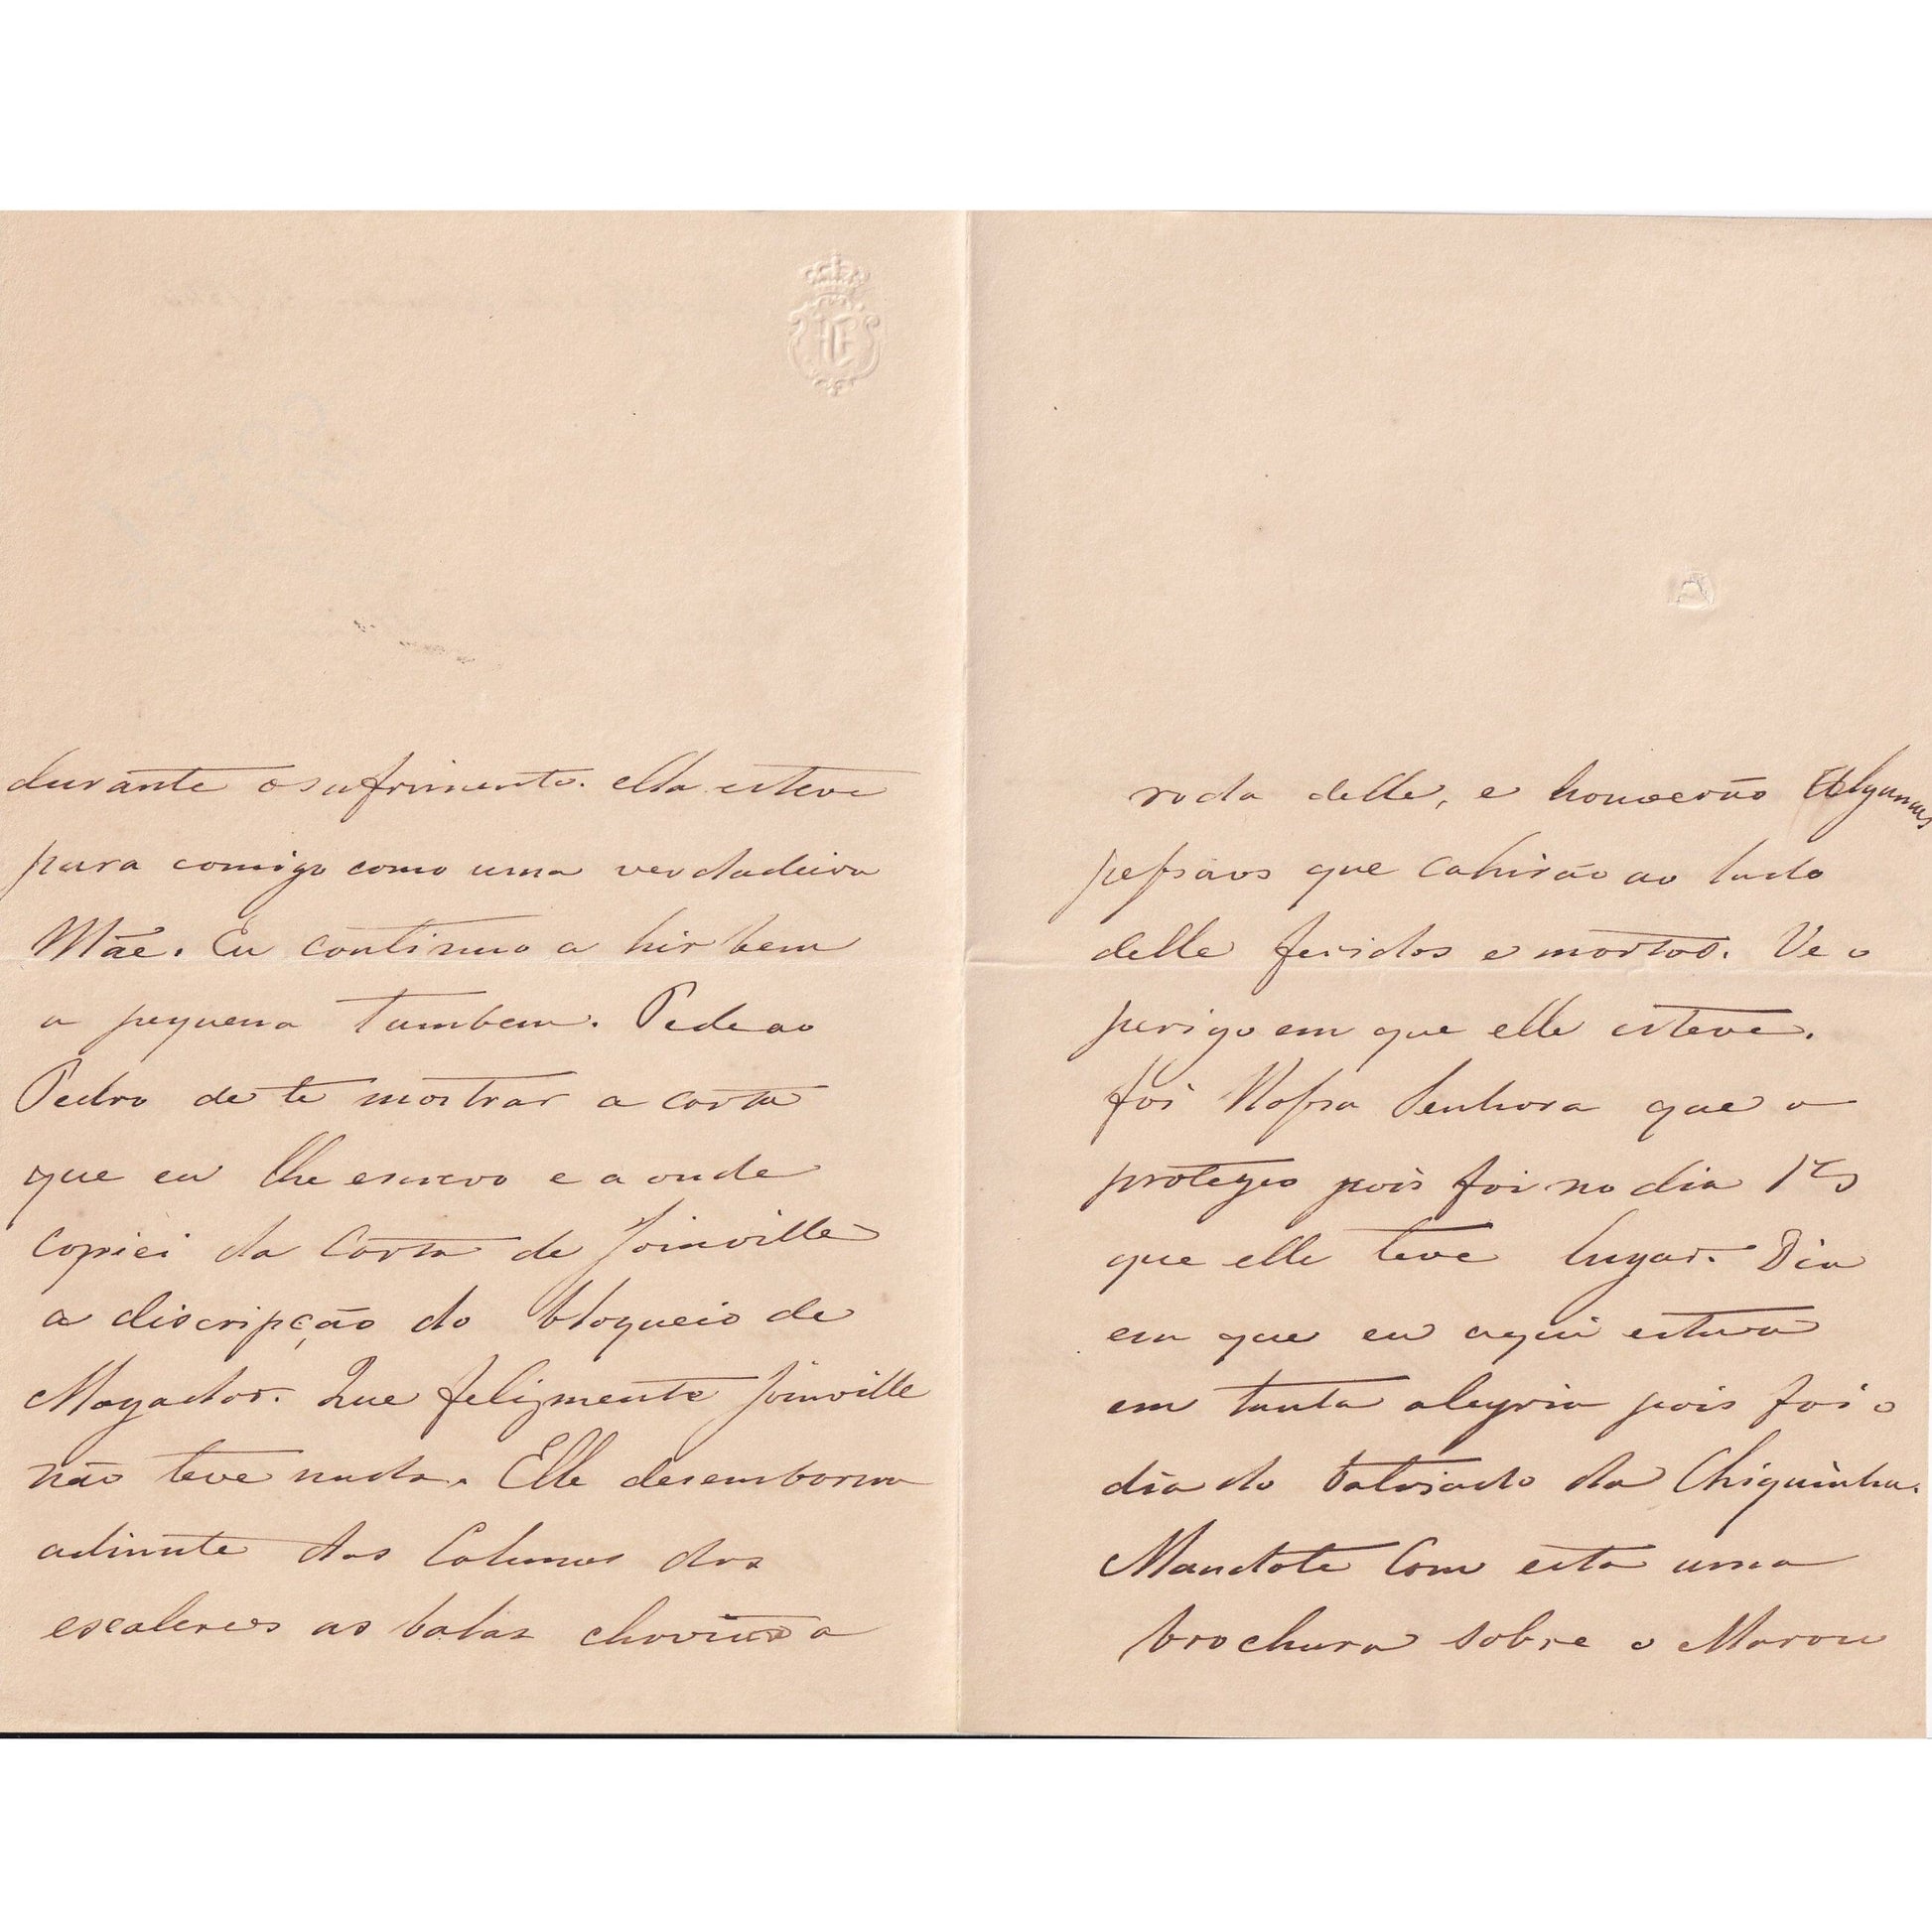 durante o sufrimento. ella esteve
para comigo como uma verdadeira
Mãe. Eu continuo a hir bem
a pequena tambem. Pede ao
Pedro de te mostrar a carta
que eu lhe escrevo e a onde
copiei da Carta de Joinville
a discripção do bloqueio de
Mogador. Que felizmente Joinville
não teve nada. Elle desembarcou
adiante das Colunas dos
escaleres as balas chovião a
roda delle, e houverão Algumas
pessoas que cahirão ao lado
delle feridos e mortos. Ve o
perigo em que elle esteve.
foi Nossa Senhora que o
protegeo pois foi no dia 15
que elle teve lugar. Dia
em que eu aqui estava
em tanta alegria pois foi o
dia do batisado da Chiquinha.
Mandote Com esta uma
brochura sobre o Maroc